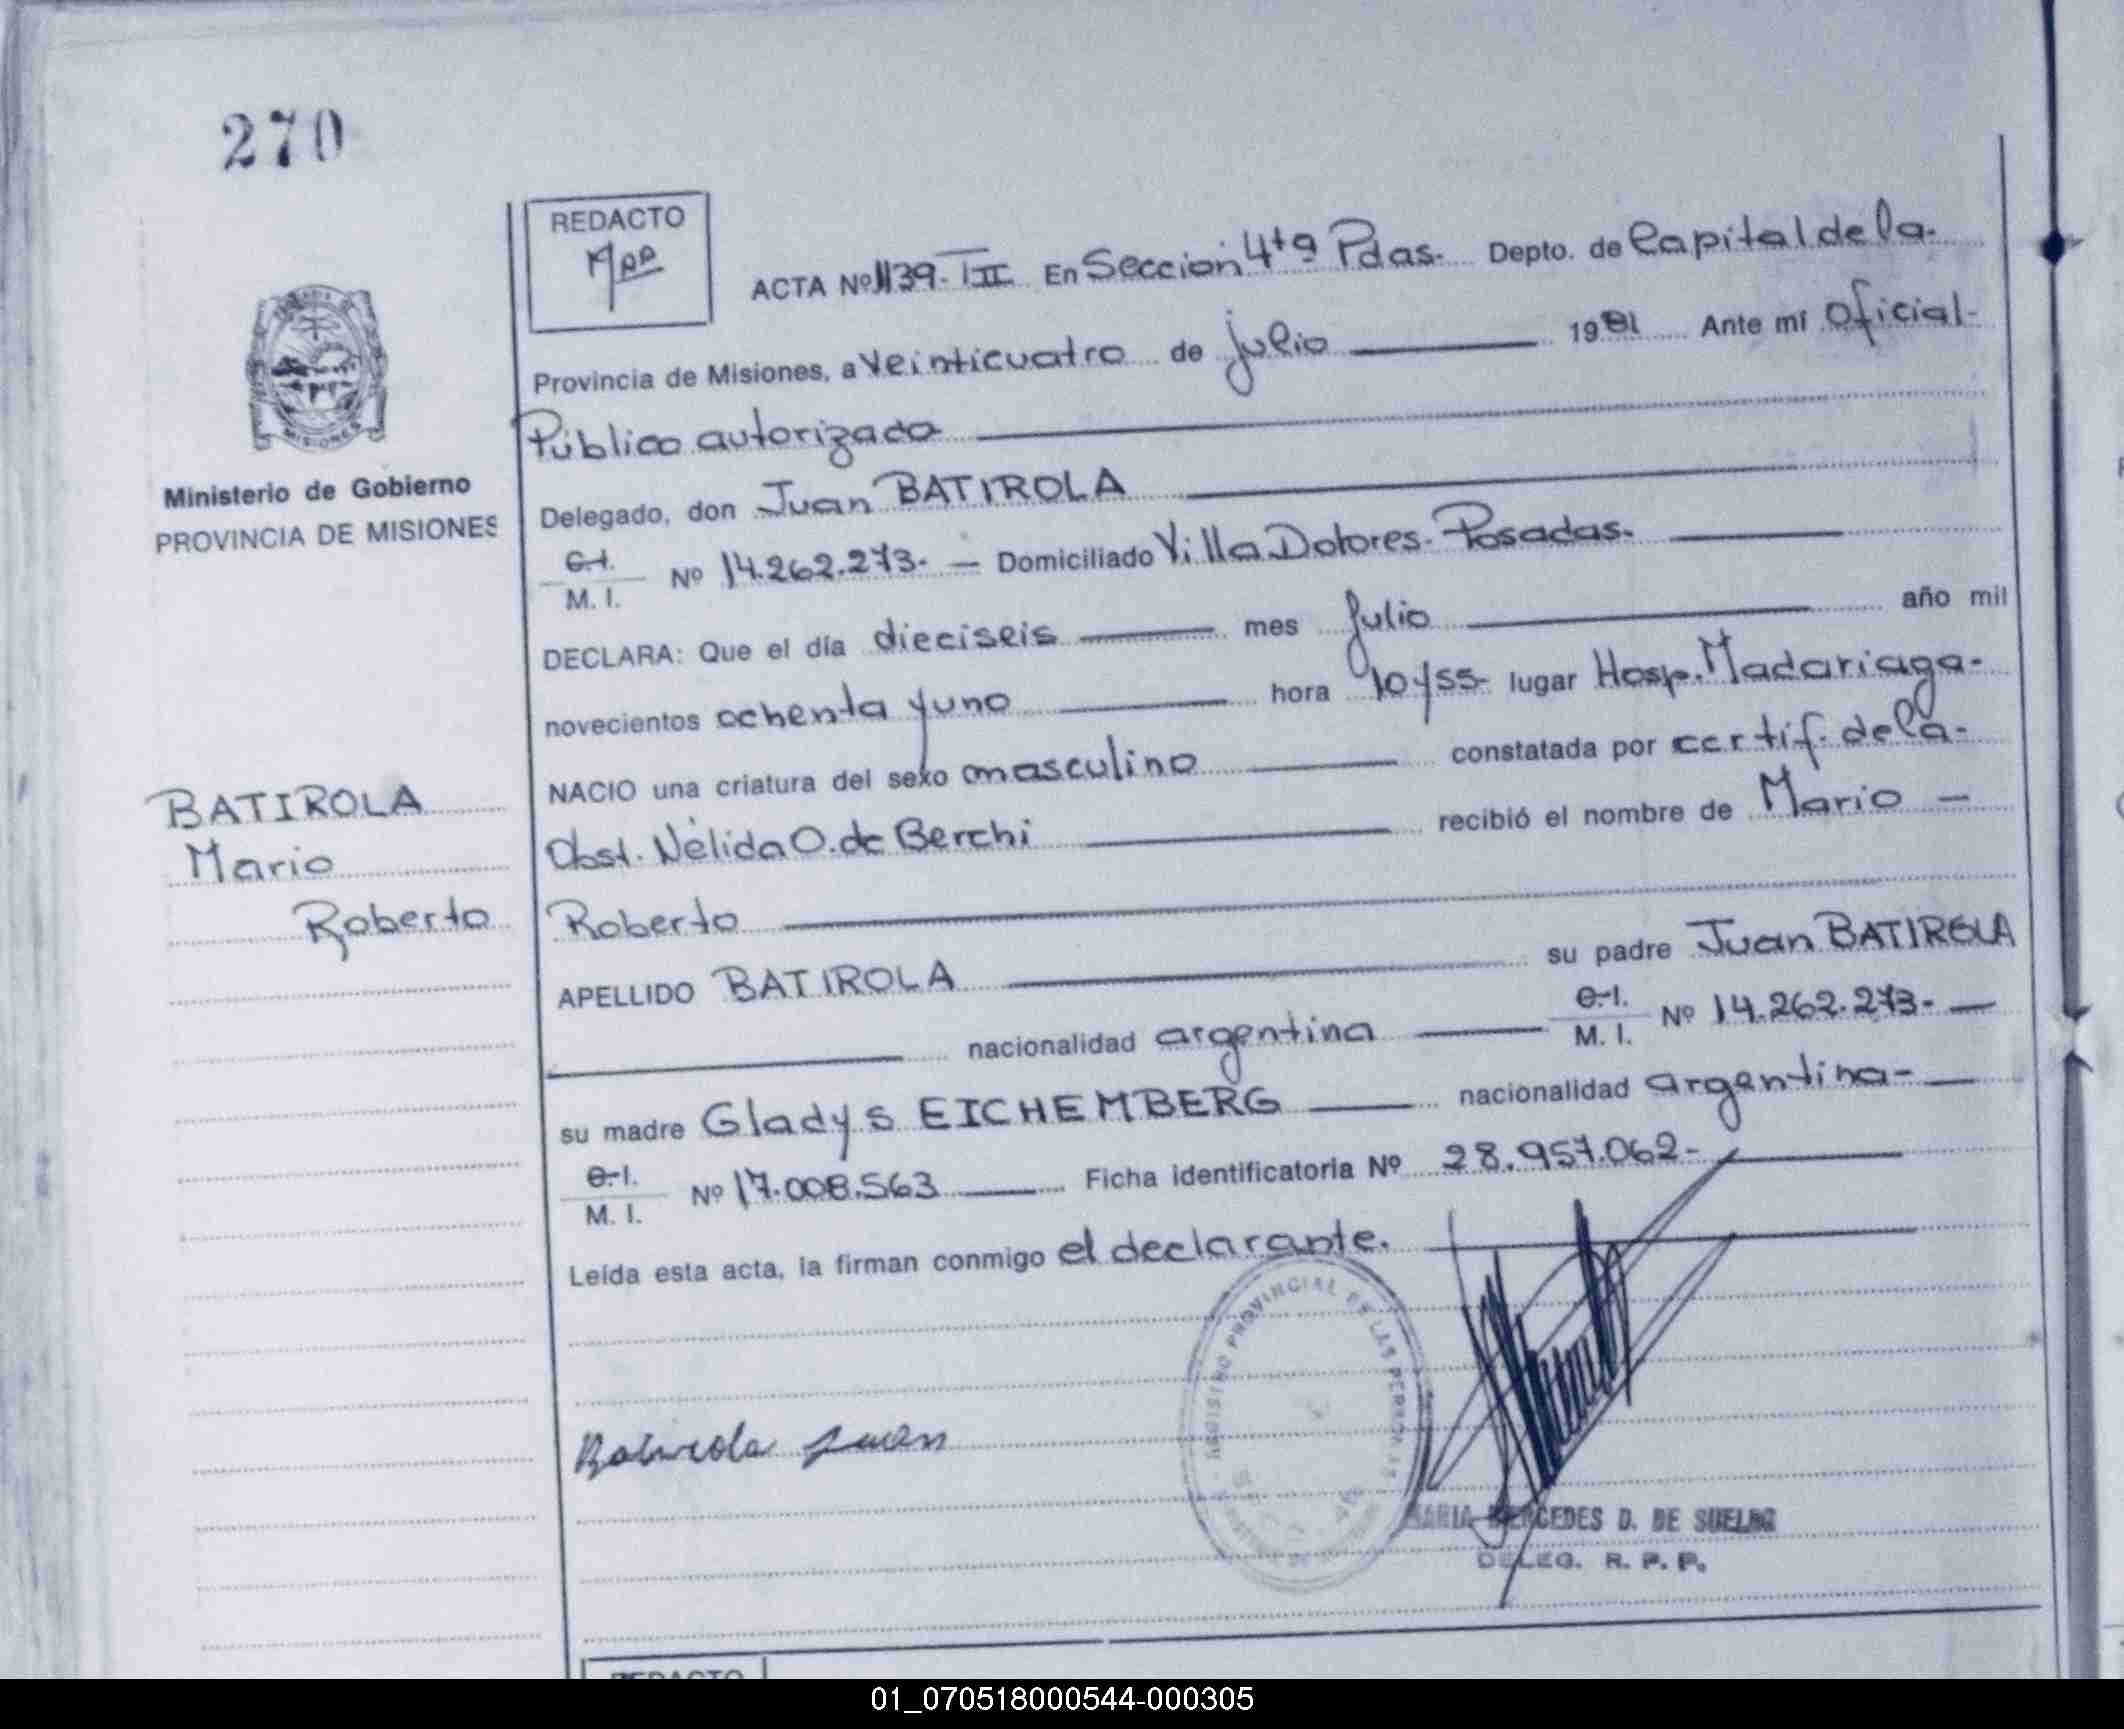 270
REDACTO
ACTA Nº 1139-III En Sección 4ta Pdas. Depto. de Capital de la-
Provincia de Misiones, a veinticuatro de julio 1981 Ante mí Oficial-
Público autorizado
MISIONES
Ministerio de Gobierno
PROVINCIA DE MISIONES
Delegado, don Juan BATIROLA
C.I. M. I. Nº 14.262.273.- Domiciliado Villa Dolores. Posadas.
DECLARA: Que el día dieciseis mes julio año mil
novecientos ochenta y uno hora 10 y 55- lugar Hosp. Madariaga-
NACIO una criatura del sexo masculino constatada por certif. de la-
BATIROLA
Mario
Roberto
Obst. Nélida O. de Berchi recibió el nombre de Mario —
Roberto
APELLIDO BATIROLA su padre Juan BATIROLA
nacionalidad argentina C.I. M. I. Nº 14.262.273.-
su madre Gladys EICHEMBERG nacionalidad argentina-
C.I. M. I. Nº 17.008.563 Ficha identificatoria Nº 28.957.062-
Leída esta acta, la firman conmigo el declarante.
REGISTRO PROVINCIAL DE LAS PERSONAS
Batirola Juan
MARIA MERCEDES D. DE
DELEG. R. P. P.
REDACTO
01_070518000544-000305